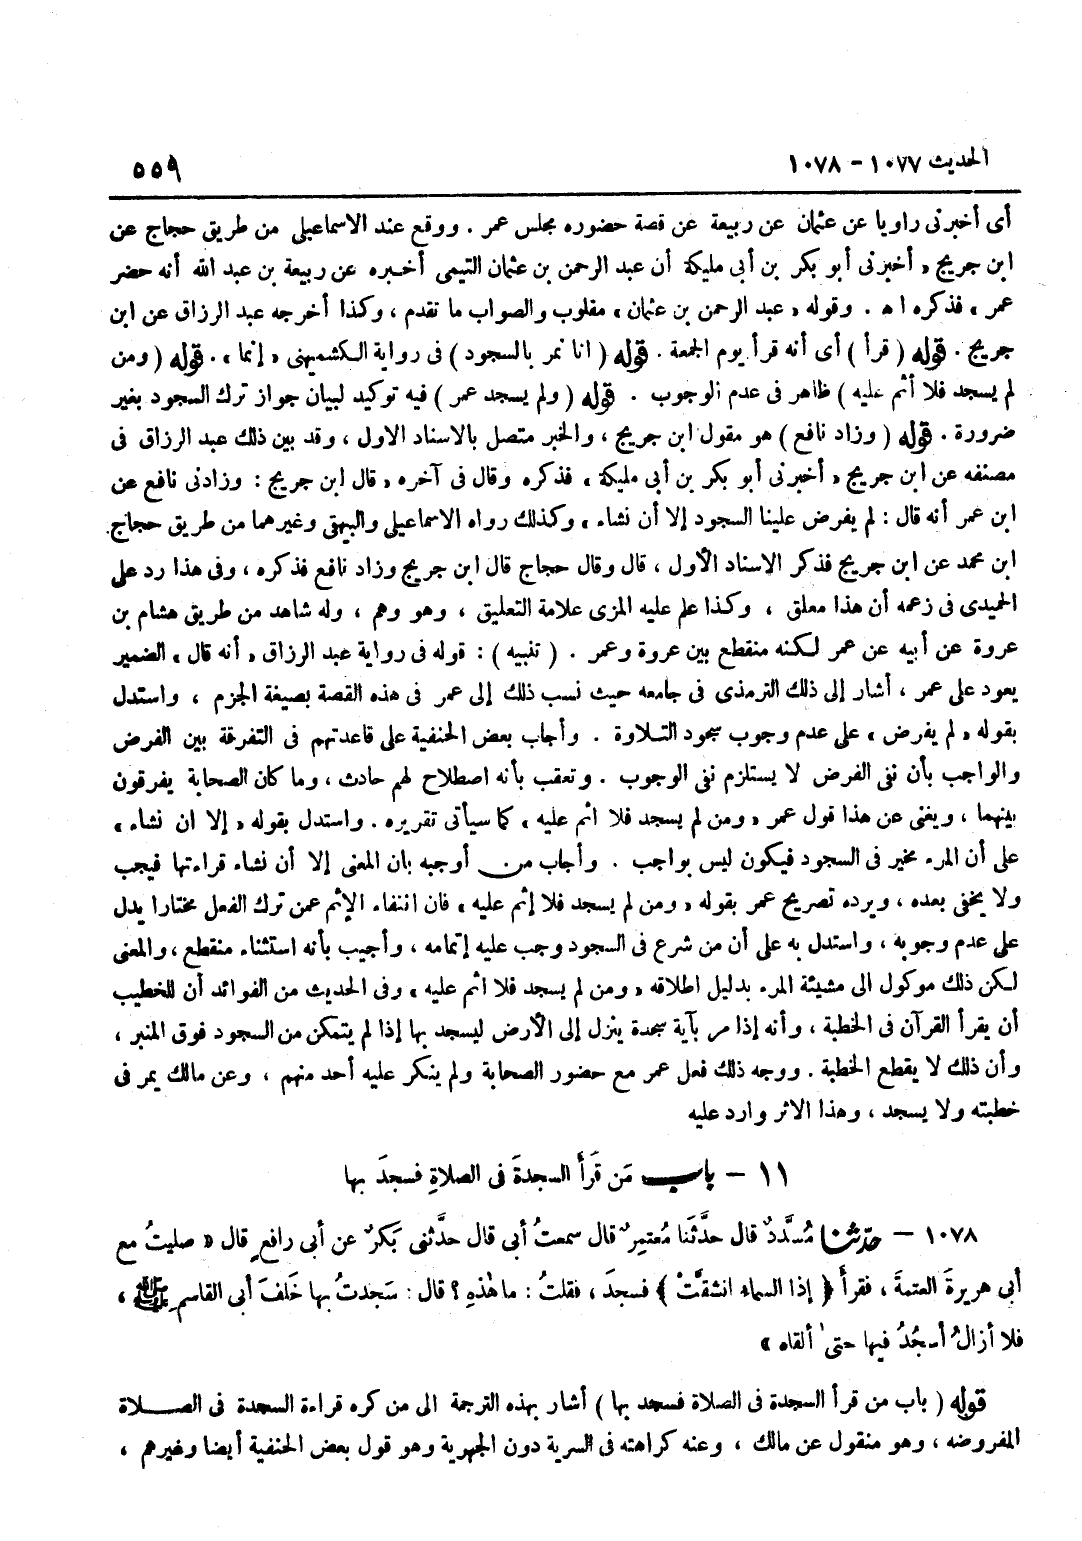 الحديث ١٠٧٧ - ١٠٧٨
٥٥٩
أى أخبرنى راويا عن عثمان عن ربيعة عن قصة حضوره مجلس عمر . ووقع عند الاسماعيلى من طريق حجاج عن
ابن جريج « أخبرنى أبو بكر بن أبى مليكة أن عبد الرحمن بن عثمان التيمى أخبره عن ربيعة بن عبد الله أنه حضر
عمر » فذكره اهـ . وقوله « عبد الرحمن بن عثمان » مقلوب والصواب ما تقدم ، وكذا أخرجه عبد الرزاق عن ابن
جريج . قوله ( قرأ ) أى أنه قرأ يوم الجمعة . قوله ( انا نمر بالسجود ) فى رواية الكشميهنى « إنما » . قوله ( ومن
لم يسجد فلا أثم عليه ) ظاهر فى عدم الوجوب . قوله ( ولم يسجد عمر ) فيه توكيد لبيان جواز ترك السجود بغير
ضرورة . قوله ( وزاد نافع ) هو مقول ابن جريج ، والخبر متصل بالاسناد الاول ، وقد بين ذلك عبد الرزاق فى
مصنفه عن ابن جريج « أخبرنى أبو بكر بن أبى مليكة » فذكره وقال فى آخره « قال ابن جريج : وزادنى نافع عن
ابن عمر أنه قال : لم يفرض علينا السجود إلا أن نشاء » وكذلك رواه الاسماعيلى والبيهقى وغيرهما من طريق حجاج
ابن محمد عن ابن جريج فذكر الاسناد الأول ، قال وقال حجاج قال ابن جريج وزاد نافع فذكره ، وفى هذا رد على
الحميدى فى زعمه أن هذا معلق ، وكذا علم عليه المزى علامة التعليق ، وهو وهم ، وله شاهد من طريق هشام بن
عروة عن أبيه عن عمر لكنه منقطع بين عروة وعمر . ( تنبيه ) : قوله فى رواية عبد الرزاق « أنه قال » الضمير
يعود على عمر ، أشار إلى ذلك الترمذى فى جامعه حيث نسب ذلك إلى عمر فى هذه القصة بصيغة الجزم ، واستدل
بقوله « لم يفرض » على عدم وجوب سجود التلاوة . وأجاب بعض الحنفية على قاعدتهم فى التفرقة بين الفرض
والواجب بأن نفى الفرض لا يستلزم نفى الوجوب . وتعقب بأنه اصطلاح لهم حادث ، وما كان الصحابة يفرقون
بينهما ، ويغنى عن هذا قول عمر « ومن لم يسجد فلا اثم عليه » كما سيأتى تقريره . واستدل بقوله « إلا ان نشاء »
على أن المرء مخير فى السجود فيكون ليس بواجب . وأجاب من أوجبه بان المعنى إلا أن نشاء قراءتها فيجب
ولا يخفى بعده ، ويرده تصريح عمر بقوله « ومن لم يسجد فلا إثم عليه » فان انتفاء الإثم عمن ترك الفعل مختارا يدل
على عدم وجوبه ، واستدل به على أن من شرع فى السجود وجب عليه إتمامه ، وأجيب بأنه استثناء منقطع ، والمعنى
لكن ذلك موكول الى مشيئة المرء بدليل اطلاقه « ومن لم يسجد فلا اثم عليه » وفى الحديث من الفوائد أن للخطيب
أن يقرأ القرآن فى الخطبة ، وأنه إذا مر بآية سجدة ينزل إلى الأرض ليسجد بها إذا لم يتمكن من السجود فوق المنبر ،
وأن ذلك لا يقطع الخطبة . ووجه ذلك فعل عمر مع حضور الصحابة ولم ينكر عليه أحد منهم ، وعن مالك يمر فى
خطبته ولا يسجد ، وهذا الاثر وارد عليه
١١ - باب مَن قَرَأَ السجدةَ فى الصلاةِ فسجدَ بها
١٠٧٨ - حدّثنا مُسَدَّدٌ قال حدَّثَنا مُعتمِرٌ قال سمعتُ أبى قال حدَّثنى بَكرٌ عن أبى رافعٍ قال « صليتُ مع
أبى هريرةَ العتمةَ ، فقرأَ ﴿ إذا السماء انشقَّتْ ﴾ فسجدَ ، فقلتُ : ما هٰذهِ ؟ قال : سَجدتُ بها خَلفَ أبى القاسمِ ﷺ ،
فلا أزالُ أسجُدُ فيها حتىٰ ألقاه »
قوله ( باب من قرأ السجدة فى الصلاة فسجد بها ) أشار بهذه الترجمة الى من كره قراءة السجدة فى الصلاة
المفروضه ، وهو منقول عن مالك ، وعنه كراهته فى السرية دون الجهرية وهو قول بعض الحنفية أيضا وغيرهم ،